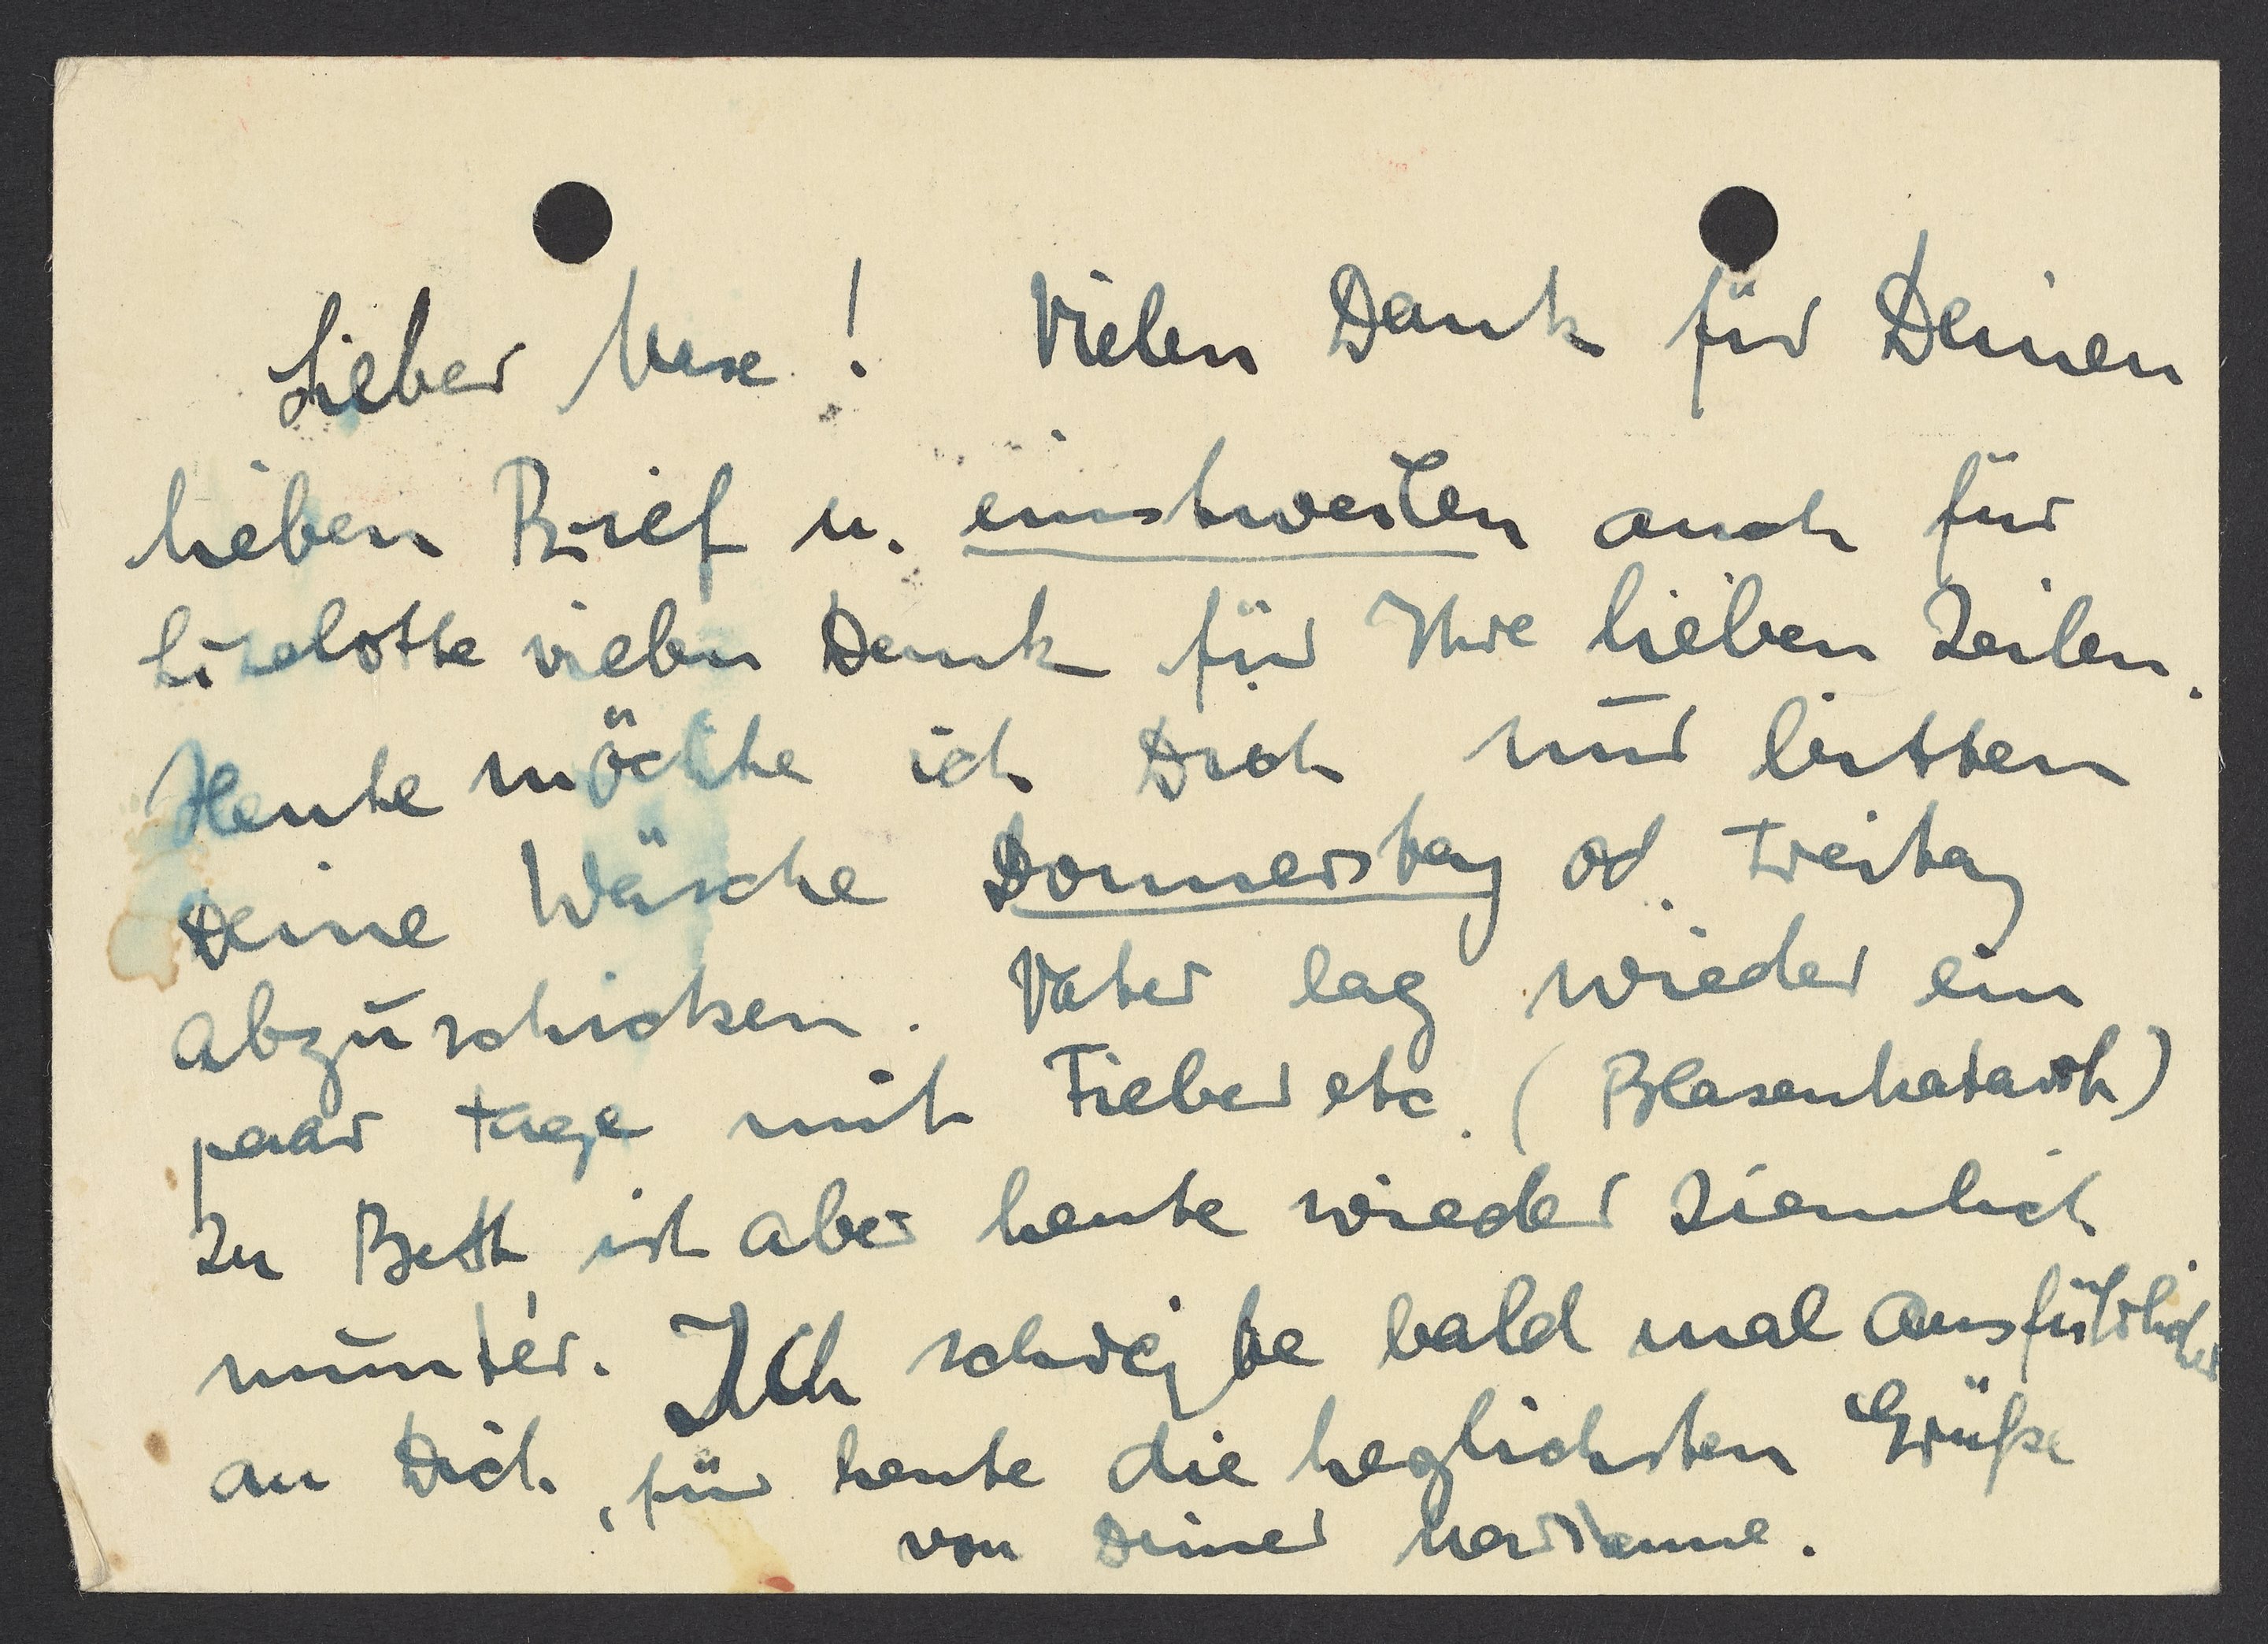 Lieber Uese! Vielen Dank für Deinen
lieben Brief u. einstweilen auch für
Liselotte vielen Dank für Ihre lieben Zeilen.
Heute möchte ich Dich nur bitten
Deine Wäsche Donnerstag od. Freitag
abzuschicken. Vater lag wieder ein
paar Tage mit Fieber etc. (Blasenkatarrh)
zu Bett ist aber heute wieder ziemlich
munter. Ich schreibe bald mal ausführlicher
an Dich, für heute die herzlichsten Grüße
von Deiner Marianne.